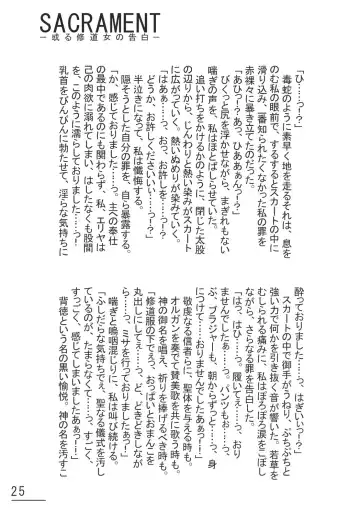 SACRAMENT
－或る修道女の告白－
「ひ……っ…？」
毒蛇のように素早く地を走るそれは、息を
のむ私の眼前で、するするとスカートの中に
滑り込み、一番知られたくなかった私の罪を
赤裸々に暴き立てたのだった…！
「あひっ？・あっ、ひああぁんっ？」
びくっと気を浮かせながら、まぎれもない
喘ぎの声を、私はほとばしらせていた。
追い打ちをかけるかのように、閉じた太股
の辺りから、じんわりと熱い染みがスカート
に広がっていく。熱いぬめりが染みていく。
「はあぁ……っ、おっ、お許しを……っ！
どうか、お許しくださいいぃ……っ！？」
半泣きになって、私は懺悔する。
隠そうとした自分の罪を、自ら暴露する。
「か、感じておりました……っ。主への奉仕
の最中であるのにも関わらず、私、エリヤは
己の肉欲に溺れてしまい、はしたなくも股間
をこのように濡らしておりました……っ！
乳首をびんびんに勃たせて、淫らな気持ちに
酔っておりました……っ、はぎいぃっ！？」
スカートの中で御手がうねり、ぶちぶちと
強い力で何かを引き抜く音が響いた。若草を
むしられる痛みに、私はぽろぽろ涙をこぼし
ながら、さらなる罪を告白した。
「はっ、はひ……っ。履いてぇ……っ、おり
ませんでしたぁ……っ。パンツもぉ……っ、
ぶ、ブラジャーも、朝からずっと……っ、身
につけて……おりませんでしたあぁっ！！」
敬虔なる信者らに、聖体を与える時も。
オルガンを奏でて賛美歌を共に歌う時も。
神の御名を唱え、祈りを捧げるべき時も。
「修道服の下でぇっ、おっぱいとおまんこを
丸出しにしてぇ……っ、ど、どきどきしなが
ら……っ、ミサを行っておりましたあっ！」
喘ぎと嗚咽混じりに、私は叫び続ける。
「ふしだらな気持ちでぇ、聖なる儀式を汚し
ているのが、たまらなくて……っ、すごく、
すっごく、感じてしまいましたあぁっ！」
背徳という名の黒い愉悦。神の名を汚すこ
25